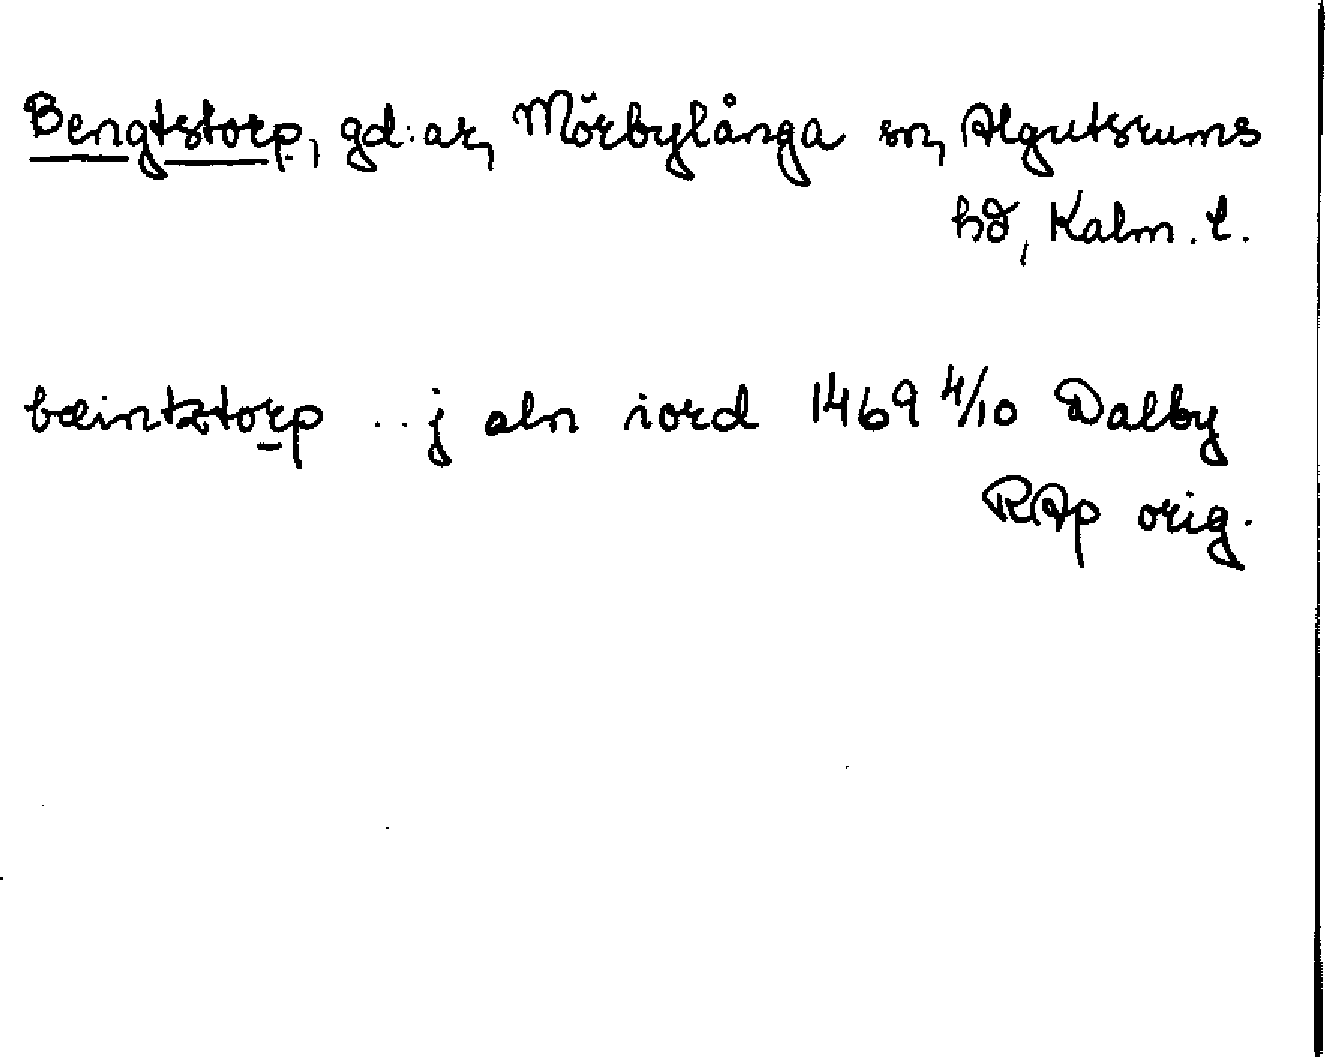 Bengtstorp, gd:ar, Mörbylånga sn, Algutsrums
hd, Kalm. l.
bæintztorp ... j aln iord 1469 4/10 Dalby
RAp orig.